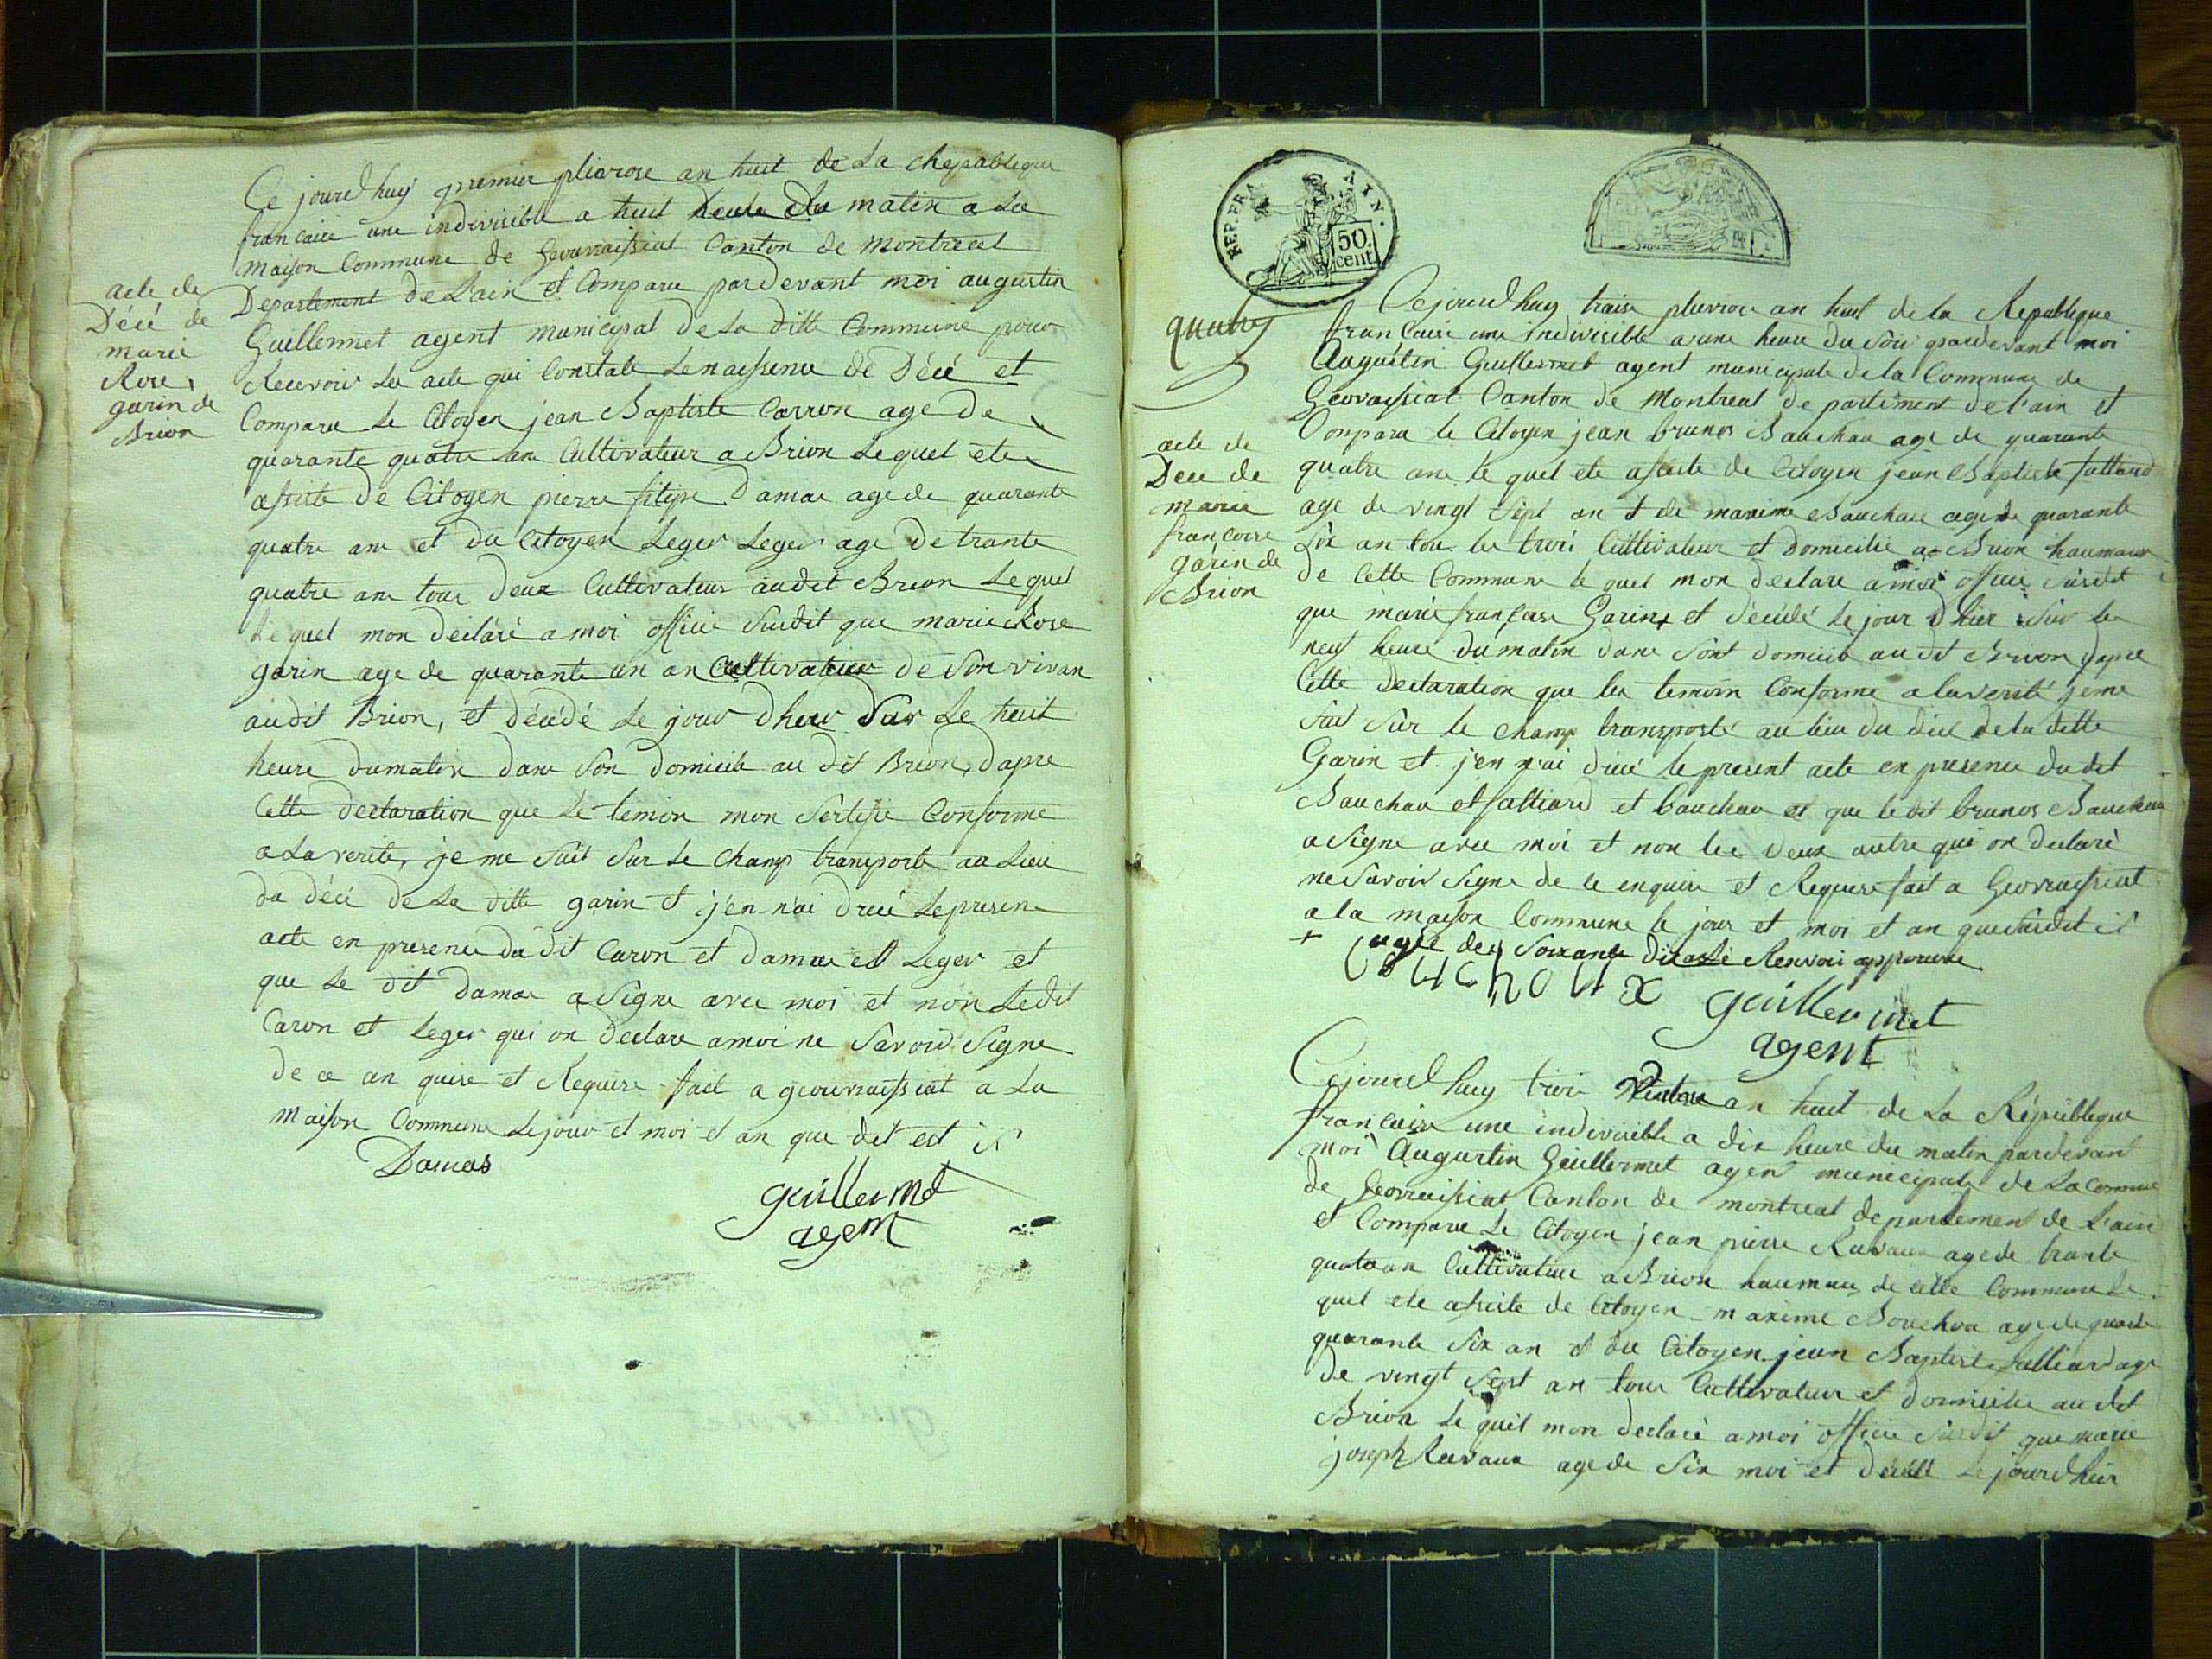 Ce jourdhuy premier pluviose an huit de La Republique
francaice une indivicible a huit heure du matin a La
maison Commune de Geovraissiat Canton de montreal
Departement de L'ain et Comparu pardevant moi augustin
Guillermet agent municipal de La ditte Commune pour
Recevoir Les acte qui Constate Le naissence de Décé et
Compare Le Citoyen jean Baptiste Carron age de
quarante quatre an Cultivateur a Brion Lequel ete
assiste de Citoyen pierre filipe Damas age de quarante
quatre an et du Citoyen Leger Leger age de trante
quatre an tous deux Cultivateur audit Brion Lequel
Le quel mon déclaré a moi officie Susdit que marie Rose
garin age de quarante un an Cultivateur de Son vivan
audit Brion, et décédé Le jour dhier Sur Le huit
heure du matin dans Son domicile au dit Brion, dapre
Cette declaration que Le temoin mon Sertifie Conforme
a La verite, je me Suit Sur Le Champ transporte au Lieu
du décé de La ditte garin et j'en n'ai drecé Le presene
acte en presence du dit Caron et damas et Leger et
que Le dit Damas a Signe avec moi et non Ledit
Caron et Leger qui on declare a moi ne Savoir Signe
de ce an quise et Requise fait a geovraissiat a La
maison Commune Le jour et moi et an que dit est
Damas
guillermet
agent
acte de
Décé de
marie
Rose
garin de
Brion
REP. FRA
50.
cent.
Ce jourdhuy traize pluviose an huit de la Republique
francaise une indivicible a une heure du Soir pardevant moi
Augustin Guillermet agent municipale de la Commune de
Geovaissiat Canton de Montreal departement de l'ain et
Compara le Citoyen jean brunos Bauchau age de quarante
quatre an le quel ete assiste de Citoyen jean Baptiste falliard
age de vingt Sept an et de maxime Bauchau age de quarante
Six an tou les troi Cultivateur et Domicilie a Brion haumaux
de Cette Commune le quel mon declare a moi officie Susdit
que marie francoise Garin + et décédé le jour dhier Sur les
neuf heure du matin dans Sont domicile au dit Brion dapre
Cette Declaration que les temoin Conforme a la verité jeme
Suit Sur le champ transporté au lieu du décé de la ditte
Garin et j'en n'ai drecé le present acte en presence du dit
Bauchau et falliard et bauchau et que le dit brunos Bauchau
a Signe avec moi et non les deux autre qui on declaré
ne Savoir Signe de ce enquire et Require fait a Geovraissiat
a la maison Commune le jour et moi et an que Susdit
+ agée de Soixante Renvoi approuve
guillermet
agent
acte de
Décé de
marie
francoise
garin de
Brion
Ce jourdhuy troi Ventose an huit de La République
francaise une indivicible a dix heure du matin pardevant
moi Augustin Guillermet agent municipale de La Commune
de Geovraissiat Canton de montreal departement de L'ain
et Comparu Le Citoyen jean pierre Ravaux age de trante
quatre an Cultivateur a Brion haumau de cette Commune Le
quel ete assiste de Citoyen maxime Bouchau age de
quarante Six an et du Citoyen jean Baptiste falliard age
de vingt Sept an tous Cultivateur et domicilie au dit
Brion Le quel mon déclaré a moi officie Susdit que marie
joseph Ravaux age de Six moi et décédé Le jourdhier